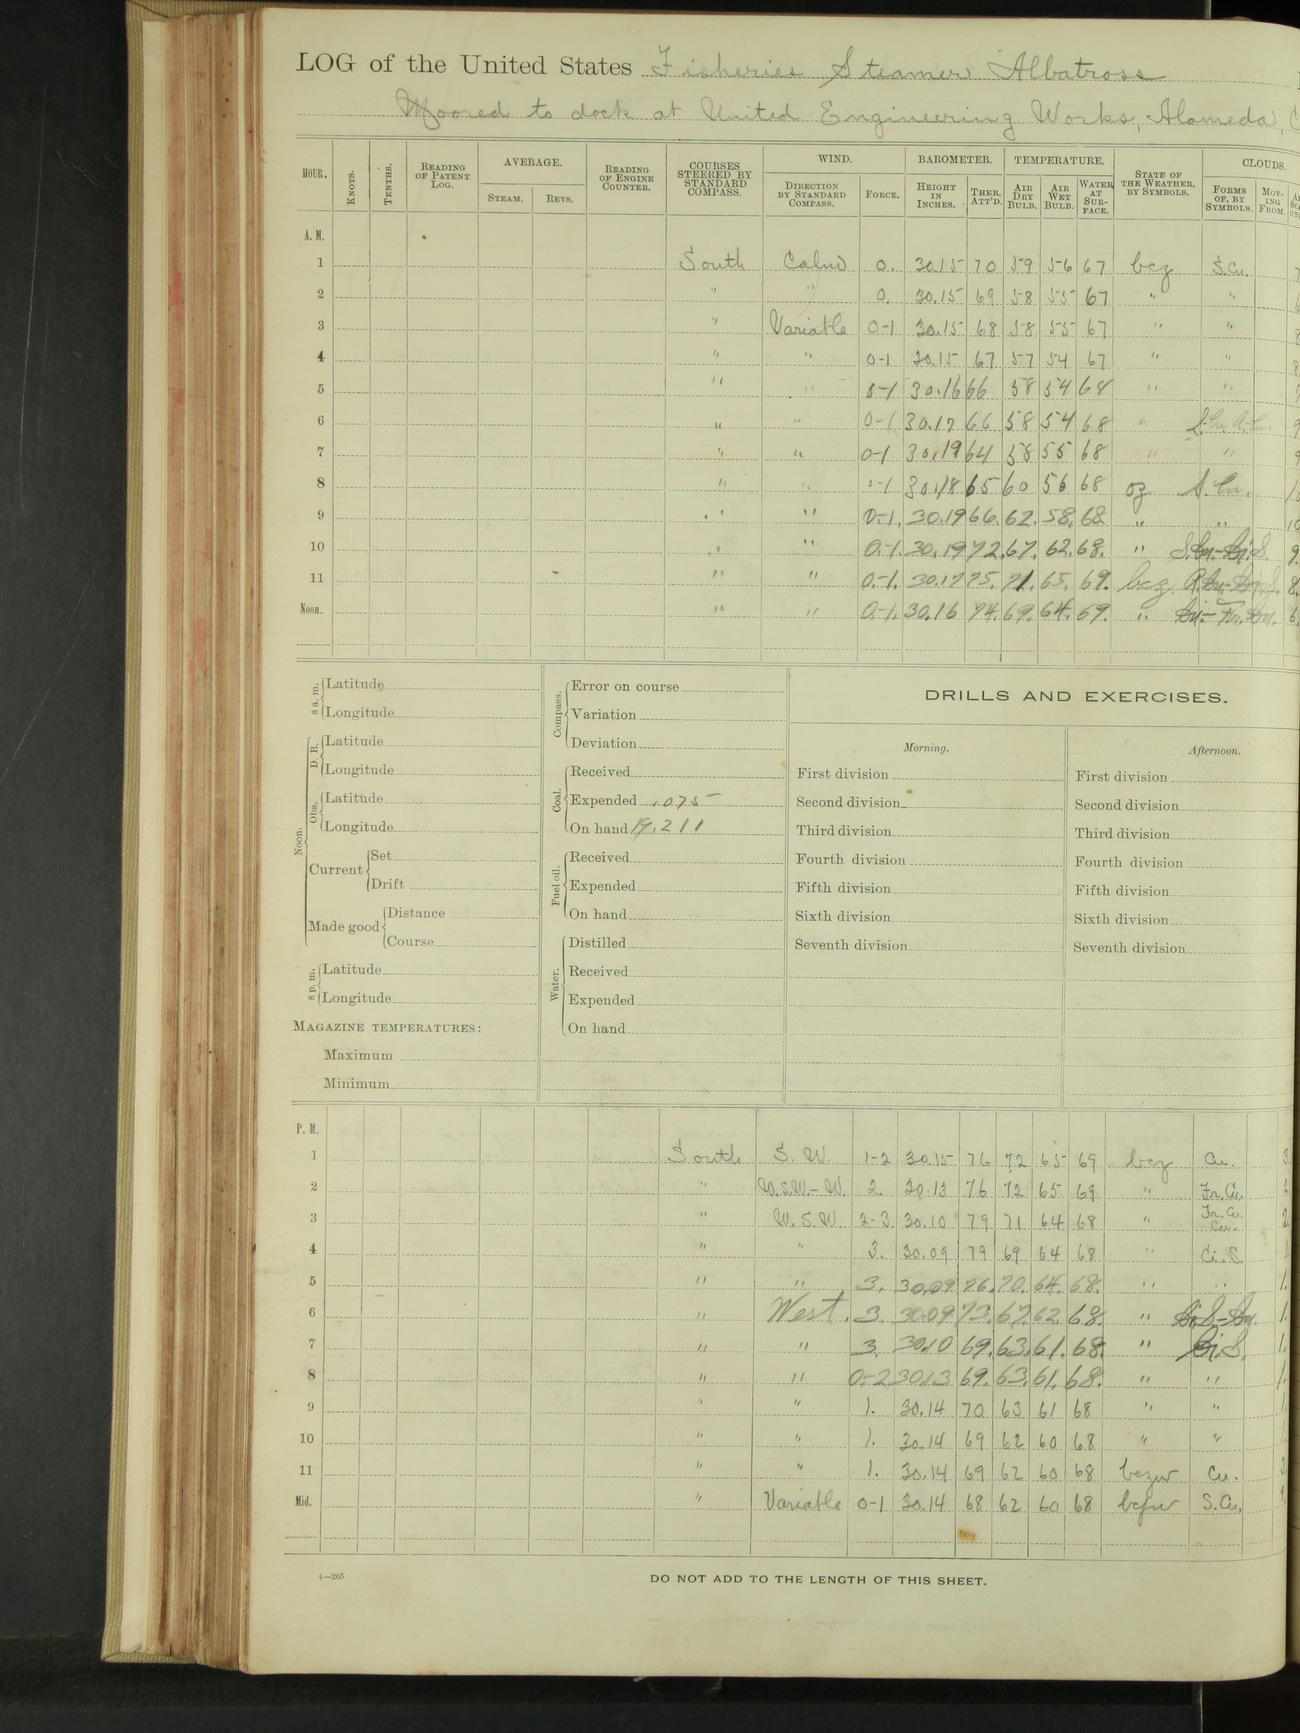 LOG of the United States Fisheries Steamer Albatross
Moored to dock at United Engineering Works, Alameda, C
HOUR. KNOTS. TENTHS. READING OF PATENT LOG. AVERAGE. STEAM. REVS. READING OF ENGINE COUNTER. COURSES STEERED BY STANDARD COMPASS. WIND. DIRECTION BY STANDARD COMPASS. FORCE. BAROMETER. HEIGHT IN INCHES. THER. ATT'D. TEMPERATURE. AIR DRY BULB. AIR WET BULB. WATER AT SURFACE. STATE OF THE WEATHER, BY SYMBOLS. CLOUDS. FORMS OF, BY SYMBOLS. MOVING FROM.
A. M.
1 South Calm 0. 30.15 70 59 56 67 bcz S.Cu.
2 " " 0. 30.15 69 58 55 67 " "
3 " Variable 0-1 30.15 68 58 55 67 " "
4 " " 0-1 30.15 67 57 54 67 " "
5 " " 0-1 30.16 66 58 54 68 " "
6 " " 0-1 30.17 66 58 54 68 " S.Cu. A.Cu.
7 " " 0-1 30.19 64 58 55 68 " "
8 " " 0-1 30.18 65 60 56 68 oz S.Cu.
9 " " 0-1. 30.19 66. 62. 58. 68 " " 10
10 " " 0-1. 30.19 72. 67. 62. 68. " S.Cu.-Ci.S. 9.
11 " " 0-1. 30.17 75. 71. 65. 69. bcz 8.
Noon. " " 0-1. 30.16 74. 69. 64. 69. " 6.
8 a.m. Latitude
Longitude
Noon. D. R. Latitude
Longitude
Obs. Latitude
Longitude
Current Set
Drift
Made good Distance
Course
8 p.m. Latitude
Longitude
MAGAZINE TEMPERATURES:
Maximum
Minimum
Compass. Error on course
Variation
Deviation
Coal. Received
Expended .075
On hand 19.211
Fuel oil. Received
Expended
On hand
Water. Distilled
Received
Expended
On hand
DRILLS AND EXERCISES.
Morning. Afternoon.
First division First division
Second division Second division
Third division Third division
Fourth division Fourth division
Fifth division Fifth division
Sixth division Sixth division
Seventh division Seventh division
P. M.
1 South S. W. 1-2 30.15 76 72 65 69 bcz Cu. 3
2 " W.S.W.-W. 2. 30.13 76 72 65 69 " Fr.Cu.
3 " W.S.W. 2-3 30.10 79 71 64 68 " Fr.Cu. Cu. 2
4 " " 3. 30.09 79 69 64 68 " Ci.S. 1
5 " " 3. 30.09 76. 70. 64. 68. " " 1.
6 " West. 3. 30.09 73. 67. 62. 68. " 1.
7 " " 3. 30.10 69. 63. 61. 68. " Ci.S. 1.
8 " " 0-2 30.13 69. 63. 61. 68. " " 1.
9 " " 1. 30.14 70 63 61 68 " "
10 " " 1. 30.14 69 62 60 68 " "
11 " " 1. 30.14 69 62 60 68 bczw Cu. 3
Mid. " Variable 0-1 30.14 68 62 60 68 bcfw S.Cu. 9
4—265
DO NOT ADD TO THE LENGTH OF THIS SHEET.